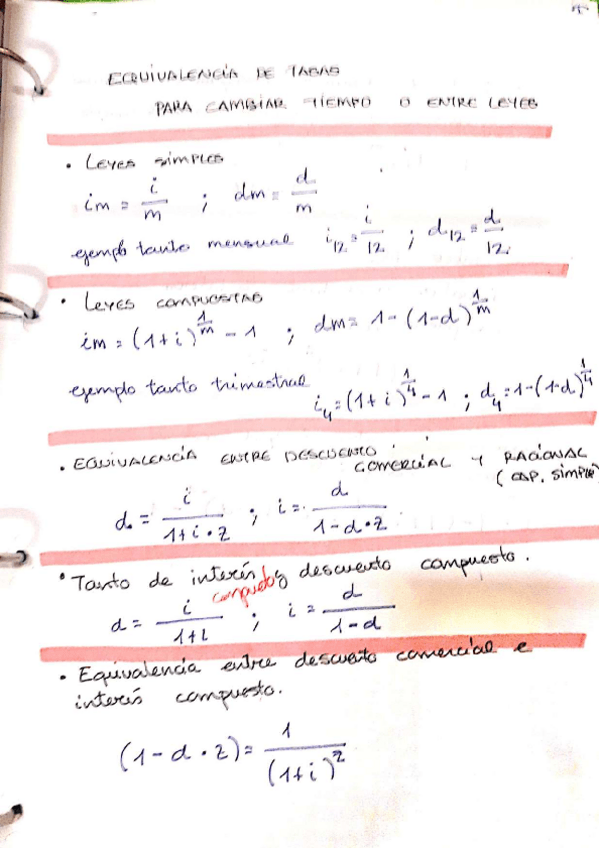 EQUIVALENCIA DE TASAS
PARA CAMBIAR TIEMPO O ENTRE LEYES
• LEYES SIMPLES
im = i/m ; dm = d/m
ejemplo tanto mensual i₁₂ = i/12 ; d₁₂ = d/12
• LEYES COMPUESTAS
im = (1+i)^(1/m) - 1 ; dm = 1-(1-d)^(1/m)
ejemplo tanto trimestral i₄ = (1+i)^(1/4) - 1 ; d₄ = 1-(1-d)^(1/4)
• EQUIVALENCIA ENTRE DESCUENTO COMERCIAL Y RACIONAL
(CAP. SIMPLE)
d = i/(1+i·z) ; i = d/(1-d·z)
• Tanto de interés y descuento compuesto.
compuesto
d = i/(1+i) ; i = d/(1-d)
• Equivalencia entre descuento comercial e
interés compuesto.
(1-d·z) = 1/(1+i)^z